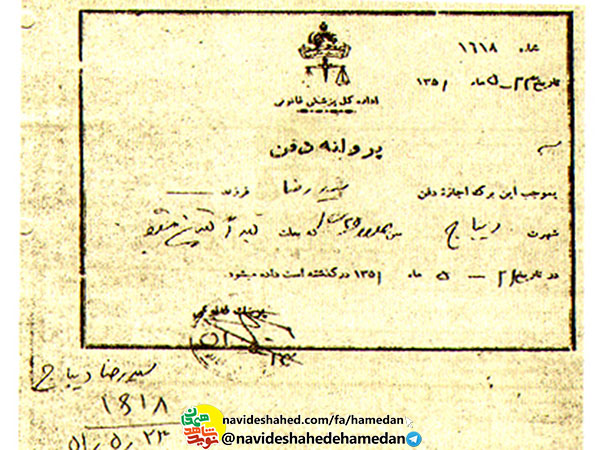 شماره ۱۶۱۸
تاریخ ۲۳ - ۵ ماه ۱۳۵۱
اداره کل پزشکی قانونی
پروانه دفن
بموجب این برگ اجازه دفن سید رضا فرزند
شهرت دیباج که بعلت
در تاریخ ۲۱ - ۵ ماه ۱۳۵۱ در گذشته است داده میشود.
پزشک قانونی
سید رضا دیباج
۱۶۱۸
۵۱/۵/۲۳
نوید شاهد همدان
navideshahed.com/fa/hamedan
@navideshahedehamedan